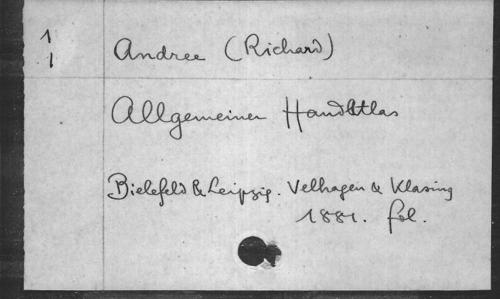 1
1
Andree (Richard)
Allgemeiner Handatlas
Bielefeld & Leipzig. Velhagen & Klasing
1881. fol.